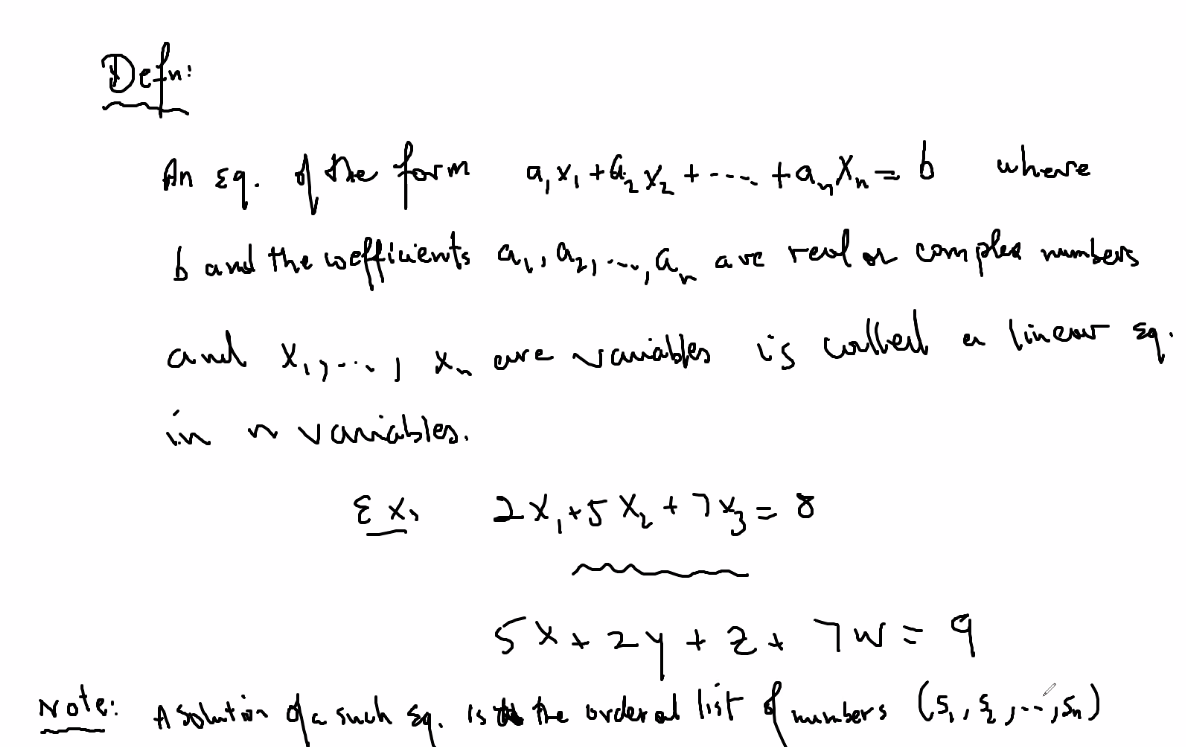 Defn:
An Eq. of the form a₁x₁ + a₂x₂ + ---- + aₙxₙ = b where
b and the coefficients a₁, a₂, ..., aₙ are real or complex numbers
and x₁, ..., xₙ are variables is called a linear Eq.
in n variables.
Ex, 2x₁ + 5x₂ + 7x₃ = 8
5x + 2y + z + 7w = 9
Note: A solution of a such Eq. is the ordered list of numbers (s₁, s₂, ..., sₙ)